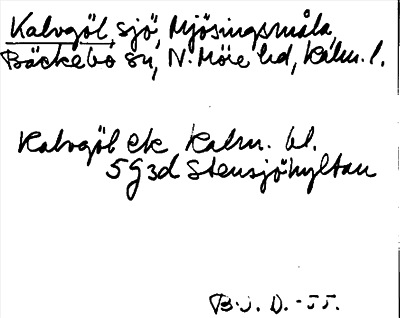 Kalvgöl, sjö, Mjösingsmåla,
Bäckebo sn, N. Möre hd, Kalm. l.
Kalvgöl ek Kalm. bl.
5 G 3d Stensjöhyltan
B. J. D. -55.